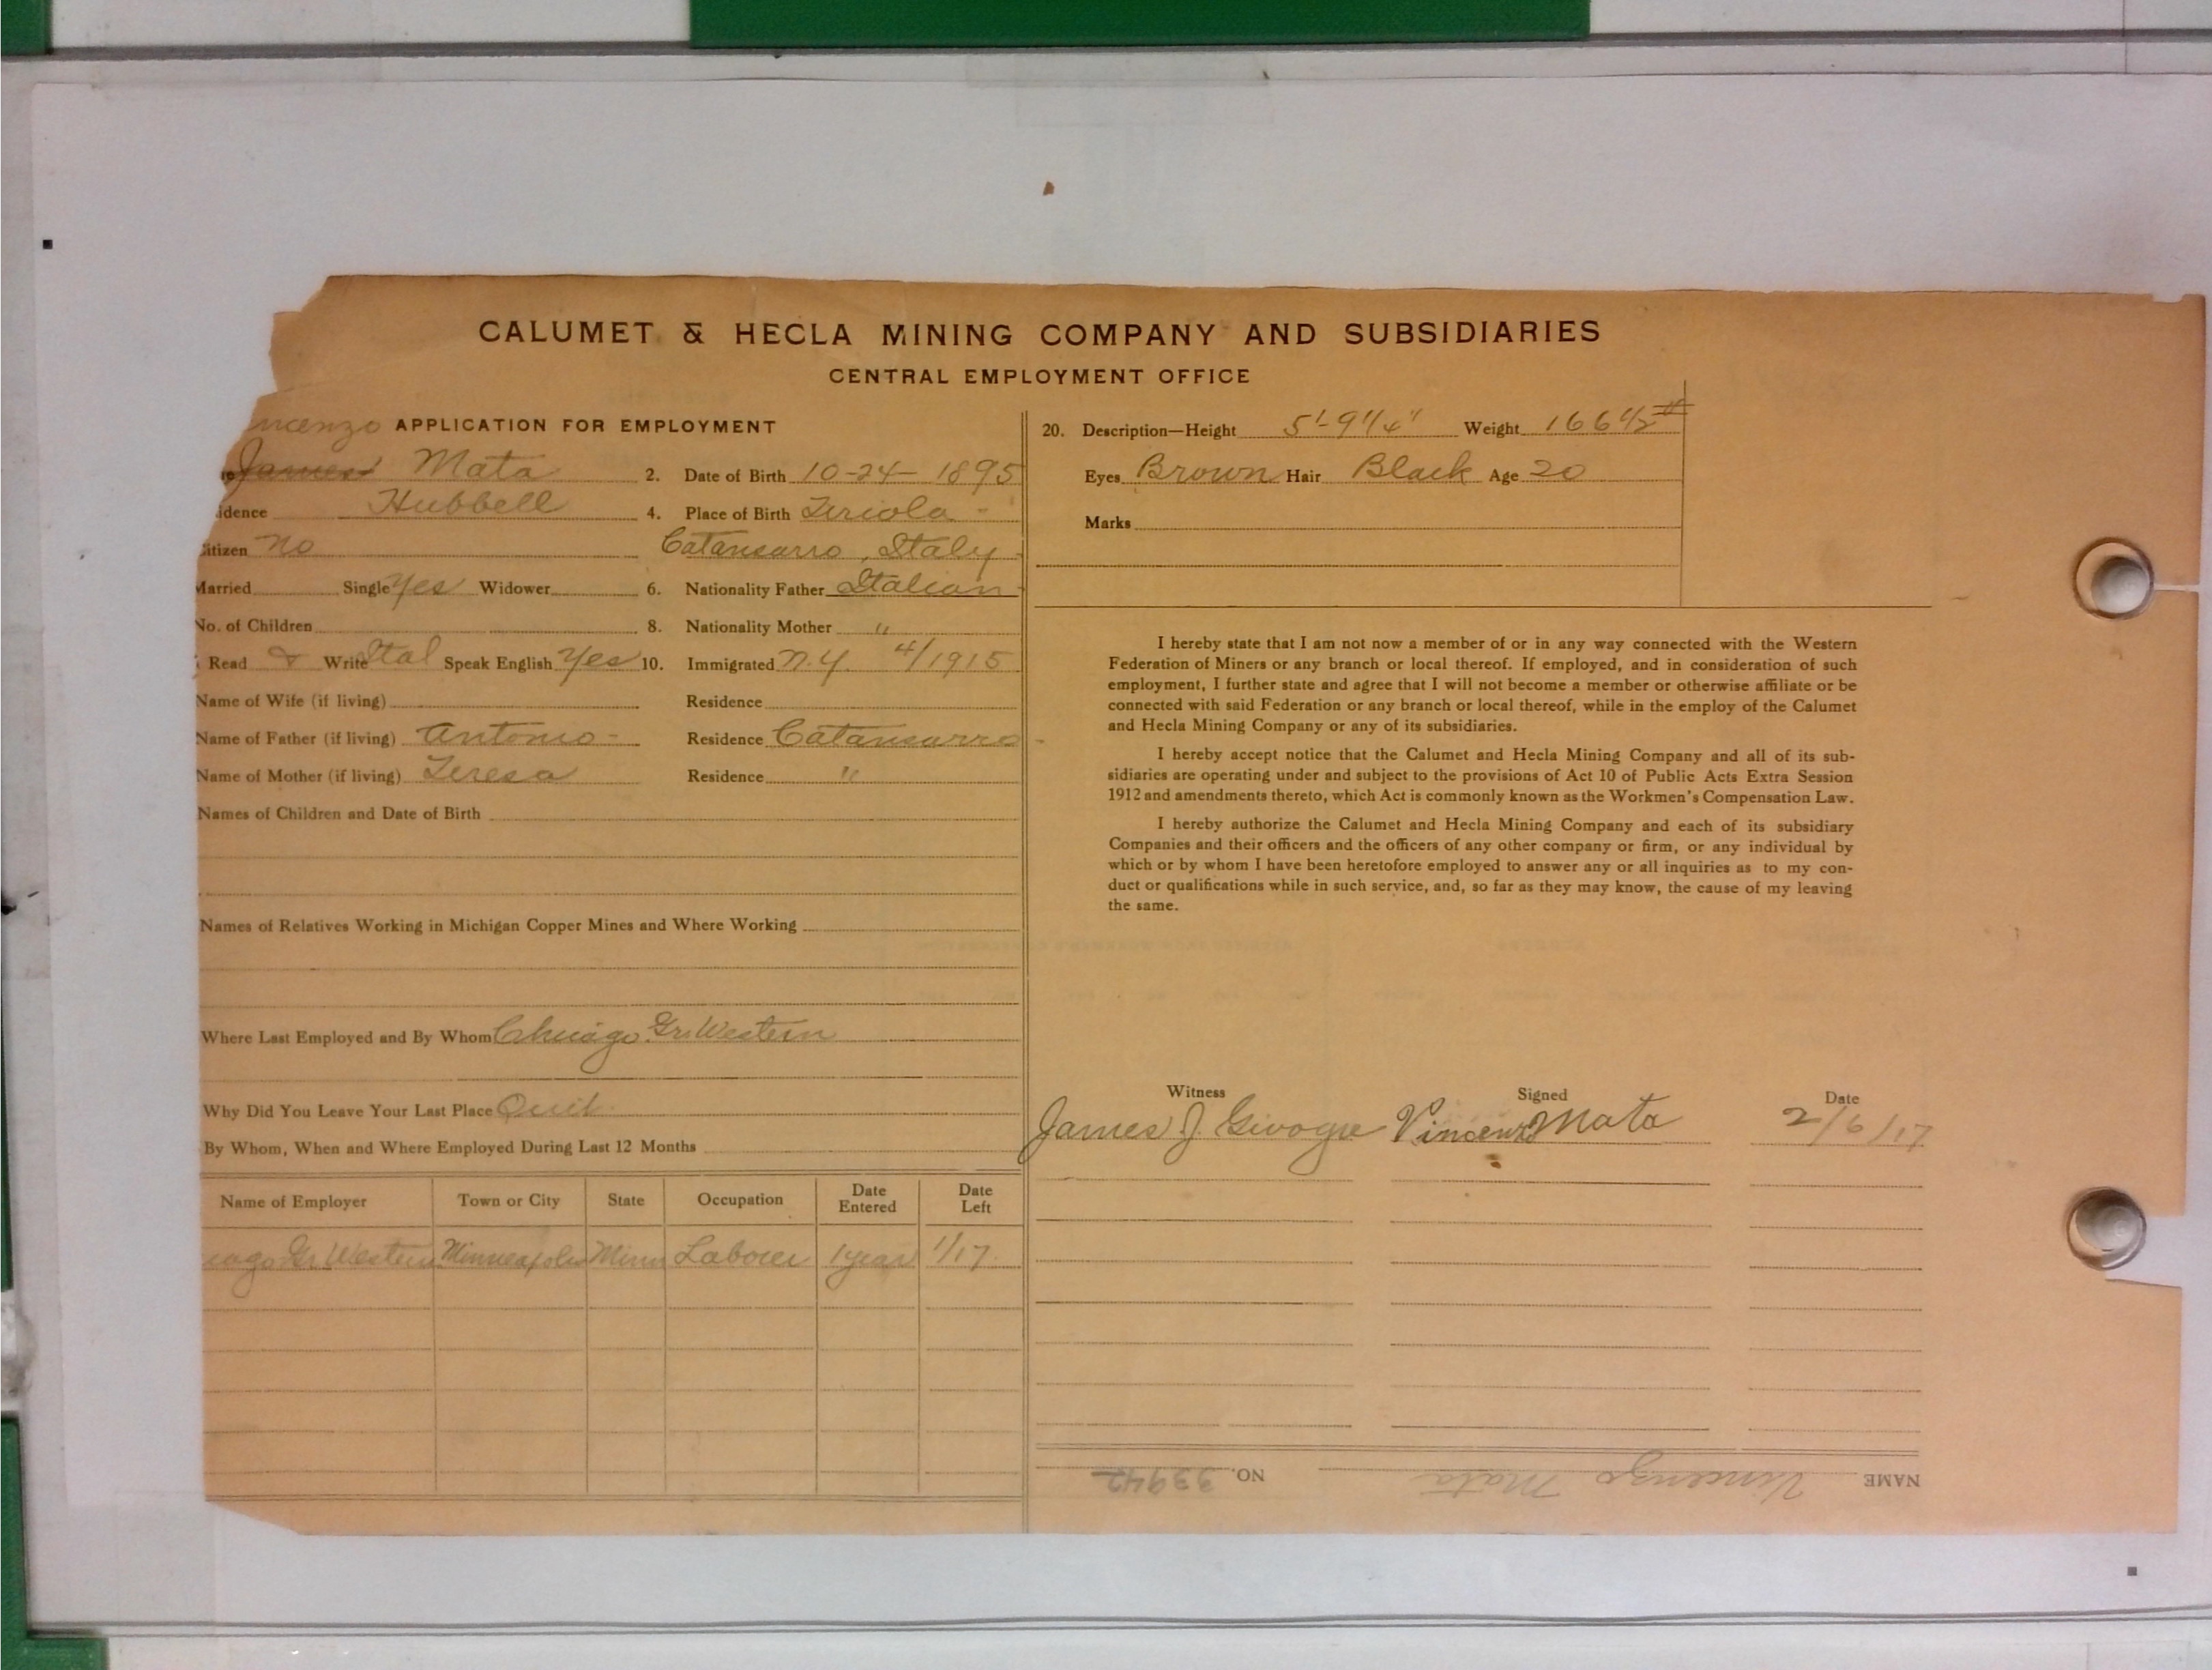 CALUMET & HECLA MINING COMPANY AND SUBSIDIARIES
CENTRAL EMPLOYMENT OFFICE
ncenzo APPLICATION FOR EMPLOYMENT
James Mata 2. Date of Birth 10-24-1895
idence Hubbell 4. Place of Birth Tiriola -
Citizen no Catansarro, Italy
Married Single Yes Widower 6. Nationality Father Italian
No. of Children 8. Nationality Mother "
Read & Write Ital Speak English Yes 10. Immigrated N.Y. 4/1915
Name of Wife (if living) Residence
Name of Father (if living) Antonio - Residence Catansarro -
Name of Mother (if living) Teresa Residence "
Names of Children and Date of Birth
Names of Relatives Working in Michigan Copper Mines and Where Working
Where Last Employed and By Whom Chicago Gr. Western
Why Did You Leave Your Last Place Quit.
By Whom, When and Where Employed During Last 12 Months
Name of Employer Town or City State Occupation Date Entered Date Left
cago Gr. Western Minneapolis Minn Laborer 1 year 1/17.
20. Description—Height 5'-9 1/4" Weight 166 1/2 #
Eyes Brown Hair Black Age 20
Marks
I hereby state that I am not now a member of or in any way connected with the Western
Federation of Miners or any branch or local thereof. If employed, and in consideration of such
employment, I further state and agree that I will not become a member or otherwise affiliate or be
connected with said Federation or any branch or local thereof, while in the employ of the Calumet
and Hecla Mining Company or any of its subsidiaries.
I hereby accept notice that the Calumet and Hecla Mining Company and all of its sub-
sidiaries are operating under and subject to the provisions of Act 10 of Public Acts Extra Session
1912 and amendments thereto, which Act is commonly known as the Workmen's Compensation Law.
I hereby authorize the Calumet and Hecla Mining Company and each of its subsidiary
Companies and their officers and the officers of any other company or firm, or any individual by
which or by whom I have been heretofore employed to answer any or all inquiries as to my con-
duct or qualifications while in such service, and, so far as they may know, the cause of my leaving
the same.
Witness Signed Date
James J Vincenzo Mata 2/6/17
NAME Vincenzo Mata NO. 33942